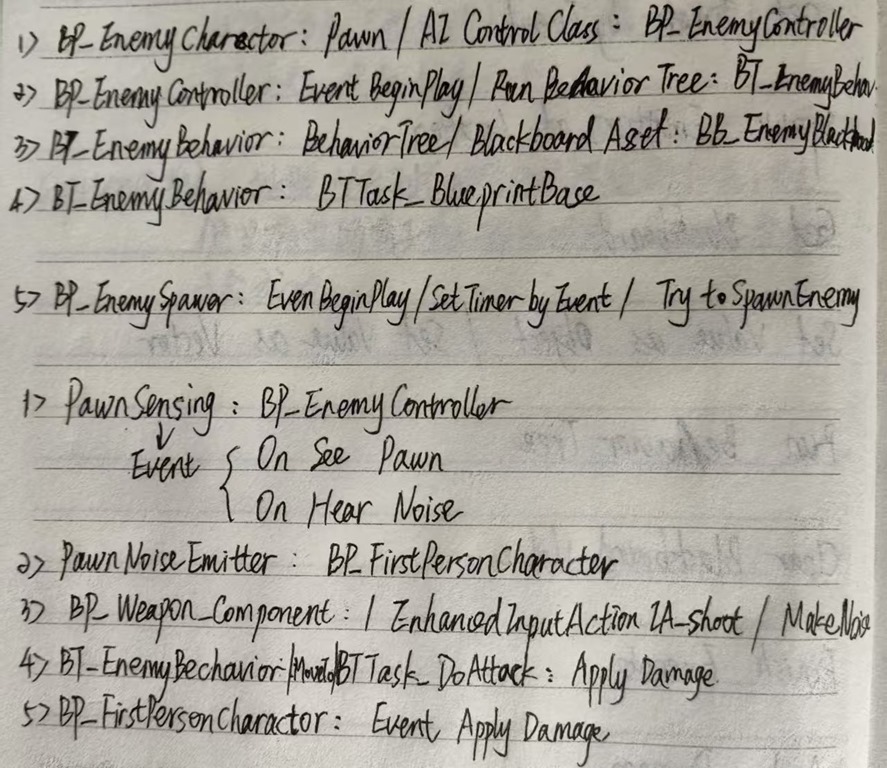 1> BP_EnemyCharactor: Pawn / AI Control Class: BP_EnemyController
2> BP_EnemyController: Event BeginPlay / Run Behavior Tree: BT_EnemyBehav
3> BT_EnemyBehavior: BehaviorTree / Blackboard Asset: BB_EnemyBlackboard
4> BT_EnemyBehavior: BTTask_BlueprintBase
5> BP_EnemySpawer: EvenBeginPlay / SetTimer by Event / Try to SpawnEnemy
1> PawnSensing: BP_EnemyController
↓
Event { On See Pawn
On Hear Noise
2> PawnNoiseEmitter: BP_FirstPersonCharacter
3> BP_Weapon_Component: / EnhancedInputAction IA_shoot / MakeNoise
4> BT_EnemyBechavior/MoveTo/BTTask_DoAttack: Apply Damage
5> BP_FirstPersonCharactor: Event Apply Damage